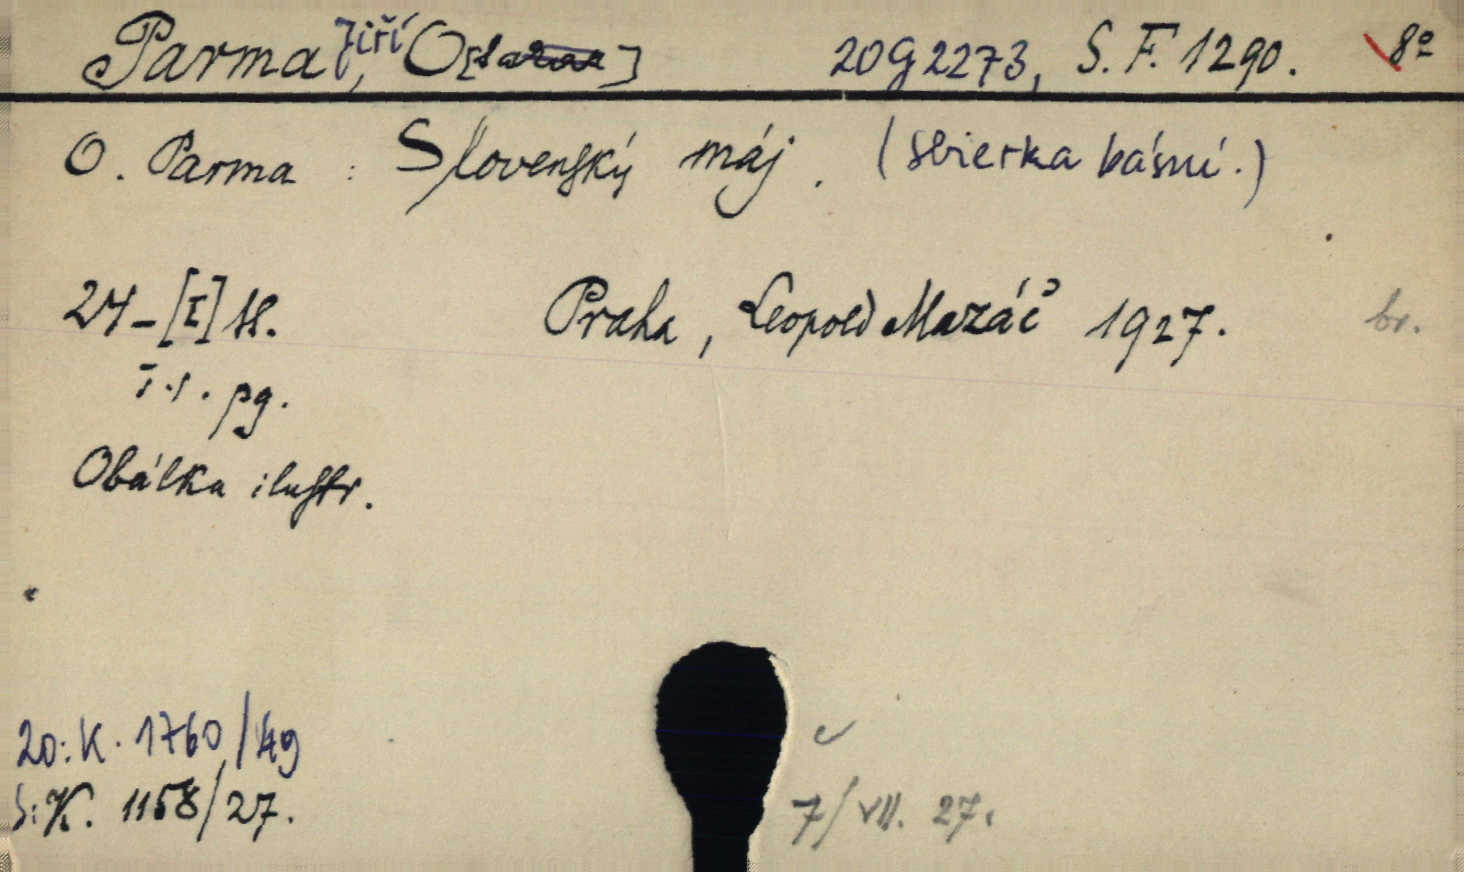 Parma, Jiří O[
20G2273, S. F. 1290. 8º
O. Parma : Slovenský máj. (Sbierka básní.)
24-[I] st.
Praha, Leopold Mazáč 1927. br.
pg.
Obálka ilustr.
20: K. 1760/49
S: K. 1158/27.
7/VII. 27.